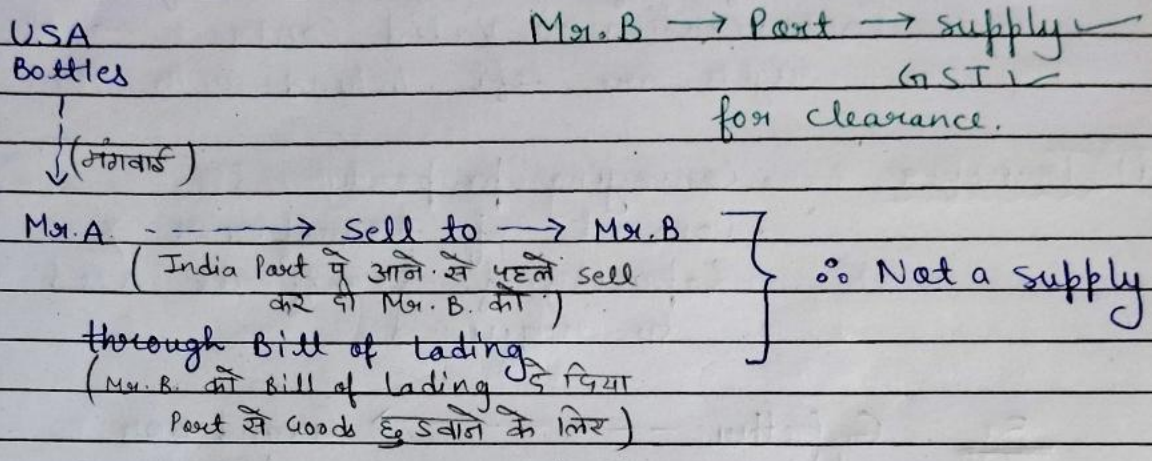 USA
Bottles
Mr. B → Port → supply ✓
GST ✓
for clearance.
(मंगवाई)
Mr. A. - - - → Sell to → Mr. B
( India Port पे आने से पहले sell
कर दी Mr. B. को )
∴ Not a supply
through Bill of lading
(Mr. B. को Bill of lading दे दिया
Port से Goods छुडवाने के लिए )